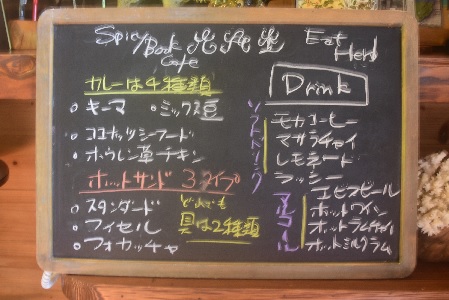 Spicy Book Cafe
Eat Herb
カレーは4種類
○キーマ ○ミックス豆
○ココナッツシーフード
○ホウレン草チキン
ホットサンド 3タイプ
○スタンダード
○フィセル
○フォカッチャ
どれでも
具は2種類
Drink
ソフトドリンク
モカコーヒー
マサラチャイ
レモネード
ラッシー
アルコール
エビスビール
ホットワイン
ホットラムチャイ
ホットミルクラム